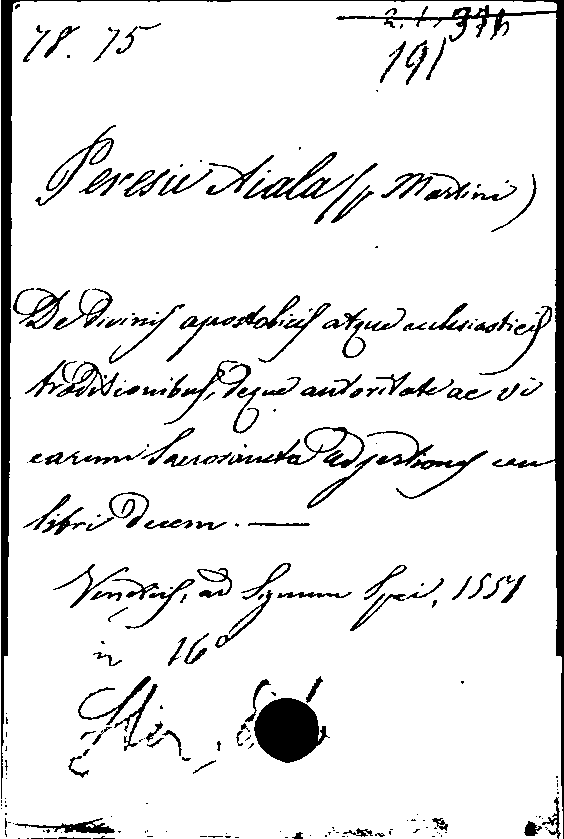 78. 75
191
Peresii Aiala (p Martini)
De Divinis apostolicis atque ecclesiasticis
traditionibus, deque autoritate ac vi
earum Sacrosancta adsertiones ceu
libri Decem. —
Venetiis, ad Signum Spei, 1551
in 16°